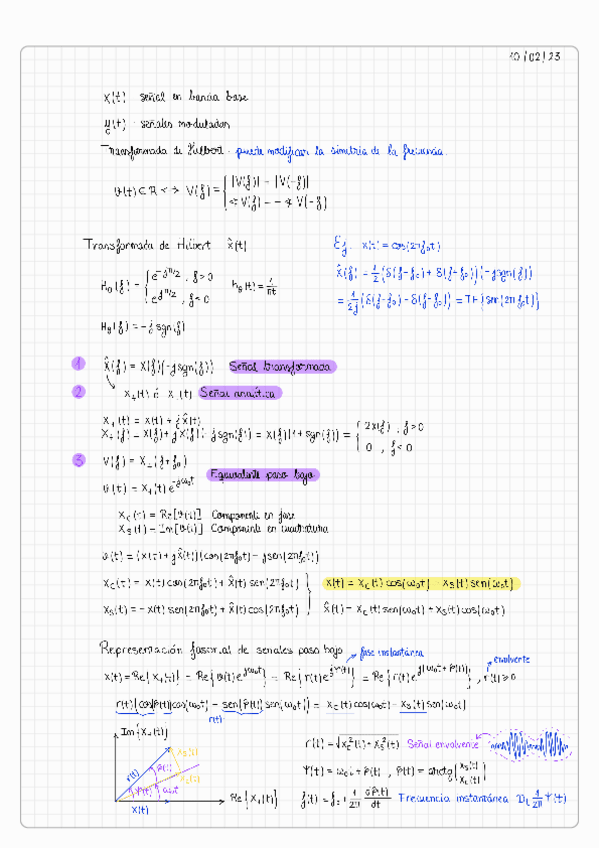 10/02/23
x(t) señal en banda base
y_c(t) señales moduladas
Transformada de Hilbert - puede modificar la simetría de la frecuencia
v(t) ⊂ R <-> V(f) = { |V(f)| = |V(-f)|
∢ V(f) = -∢ V(-f)
Transformada de Hilbert x̂(t)
Ej. x(t) = cos(2πf₀t)
H_Q(f) = { e^{-jπ/2}, f>0
e^{jπ/2}, f<0
h_Q(t) = 1/πt
X̂(f) = 1/2 (δ(f-f₀) + δ(f+f₀))(-jsgn(f))
= 1/2j (δ(f-f₀) - δ(f+f₀)) = TF{sen(2πf₀t)}
H_Q(f) = -j sgn(f)
1 X̂(f) = X(f)(-jsgn(f)) Señal transformada
2 x₊(t) ó x₋(t) Señal analítica
x₊(t) = x(t) + jx̂(t)
X₊(f) = X(f) + jX(f)(-jsgn(f)) = X(f)(1+sgn(f)) = { 2X(f), f>0
0, f<0
3 V(f) = X₊(f+f₀)
Equivalente paso bajo
v(t) = x₊(t) e^{-jω₀t}
x_c(t) = Re[v(t)] Componente en fase
x_s(t) = Im[v(t)] Componente en cuadratura
v(t) = (x(t) + jx̂(t))(cos(2πf₀t) - jsen(2πf₀t))
x_c(t) = x(t) cos(2πf₀t) + x̂(t) sen(2πf₀t) } x(t) = x_c(t) cos(ω₀t) - x_s(t) sen(ω₀t)
x_s(t) = -x(t) sen(2πf₀t) + x̂(t) cos(2πf₀t) x̂(t) = x_c(t) sen(ω₀t) + x_s(t) cos(ω₀t)
Representación fasorial de señales paso bajo
fase instantánea
envolvente
x(t) = Re{x₊(t)} = Re{v(t)e^{jω₀t}} = Re{r(t)e^{jΨ(t)}} = Re{r(t)e^{j(ω₀t+φ(t))}}, r(t) ≥ 0
r(t)(cos(φ(t))cos(ω₀t) - sen(φ(t)) sen(ω₀t)) = x_c(t) cos(ω₀t) - x_s(t) sen(ω₀t)
r(t)
Im{x₊(t)}
r(t) = √(x_c²(t) + x_s²(t)) Señal envolvente
x_s(t)
r(t)
φ(t)
x_c(t)
Ψ(t) = ω₀t + φ(t), φ(t) = arctg(x_s(t)/x_c(t))
Ψ(t)
ω₀t
Re{x₊(t)}
x(t)
f(t) = f₀ + 1/2π dφ(t)/dt Frecuencia instantánea D_t 1/2π Ψ(t)